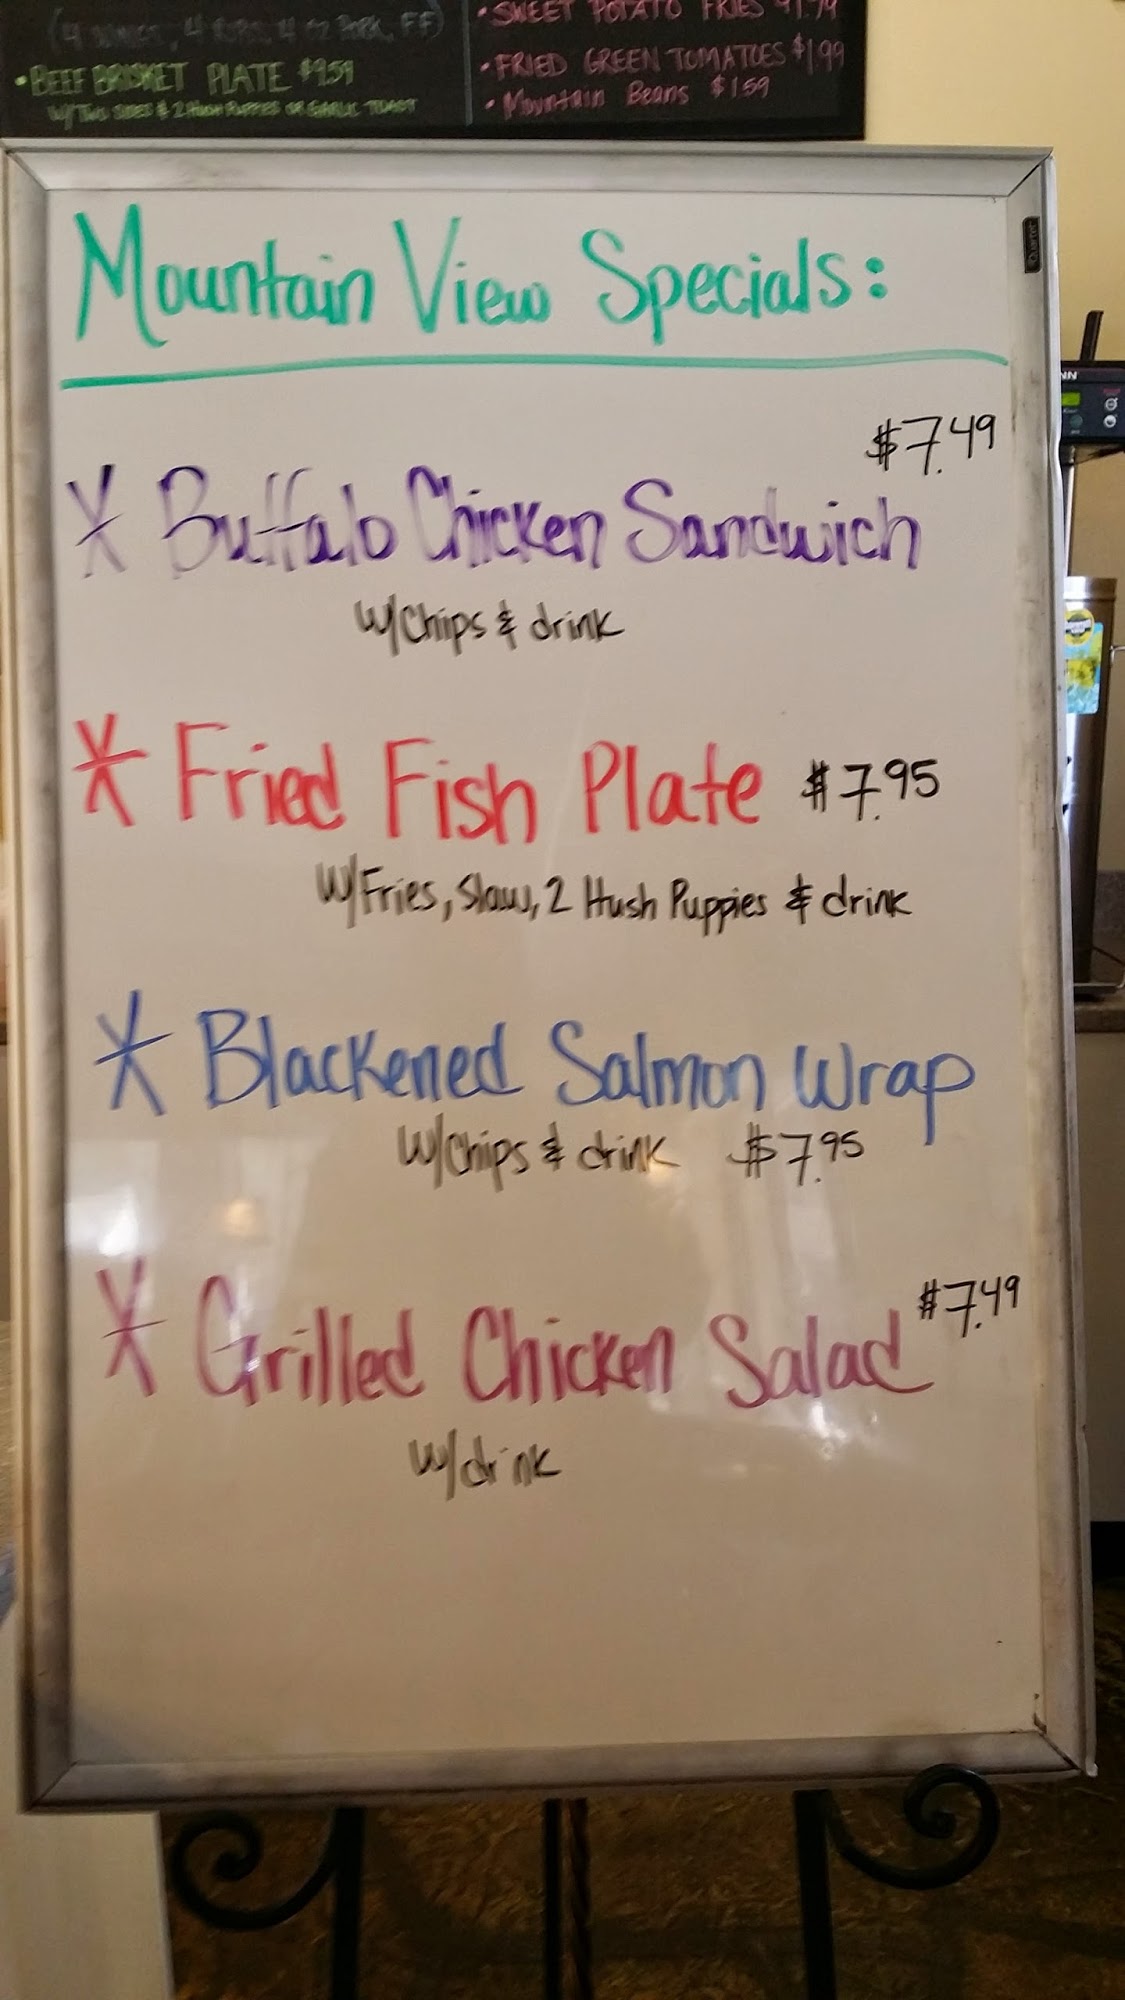 (4 WINGS, 4 RIBS, 4 OZ PORK, FF)
• BEEF BRISKET PLATE $9.59
W/ TWO SIDES & 2 HUSH PUPPIES OR GARLIC TOAST
• SWEET POTATO FRIES $1.79
• FRIED GREEN TOMATOES $1.99
• Mountain Beans $1.59
Mountain View Specials:
$7.49
* Buffalo Chicken Sandwich
W/Chips & drink
* Fried Fish Plate $7.95
W/Fries, Slaw, 2 Hush Puppies & drink
* Blackened Salmon Wrap
W/Chips & drink $7.95
* Grilled Chicken Salad $7.49
W/drink
Quartet